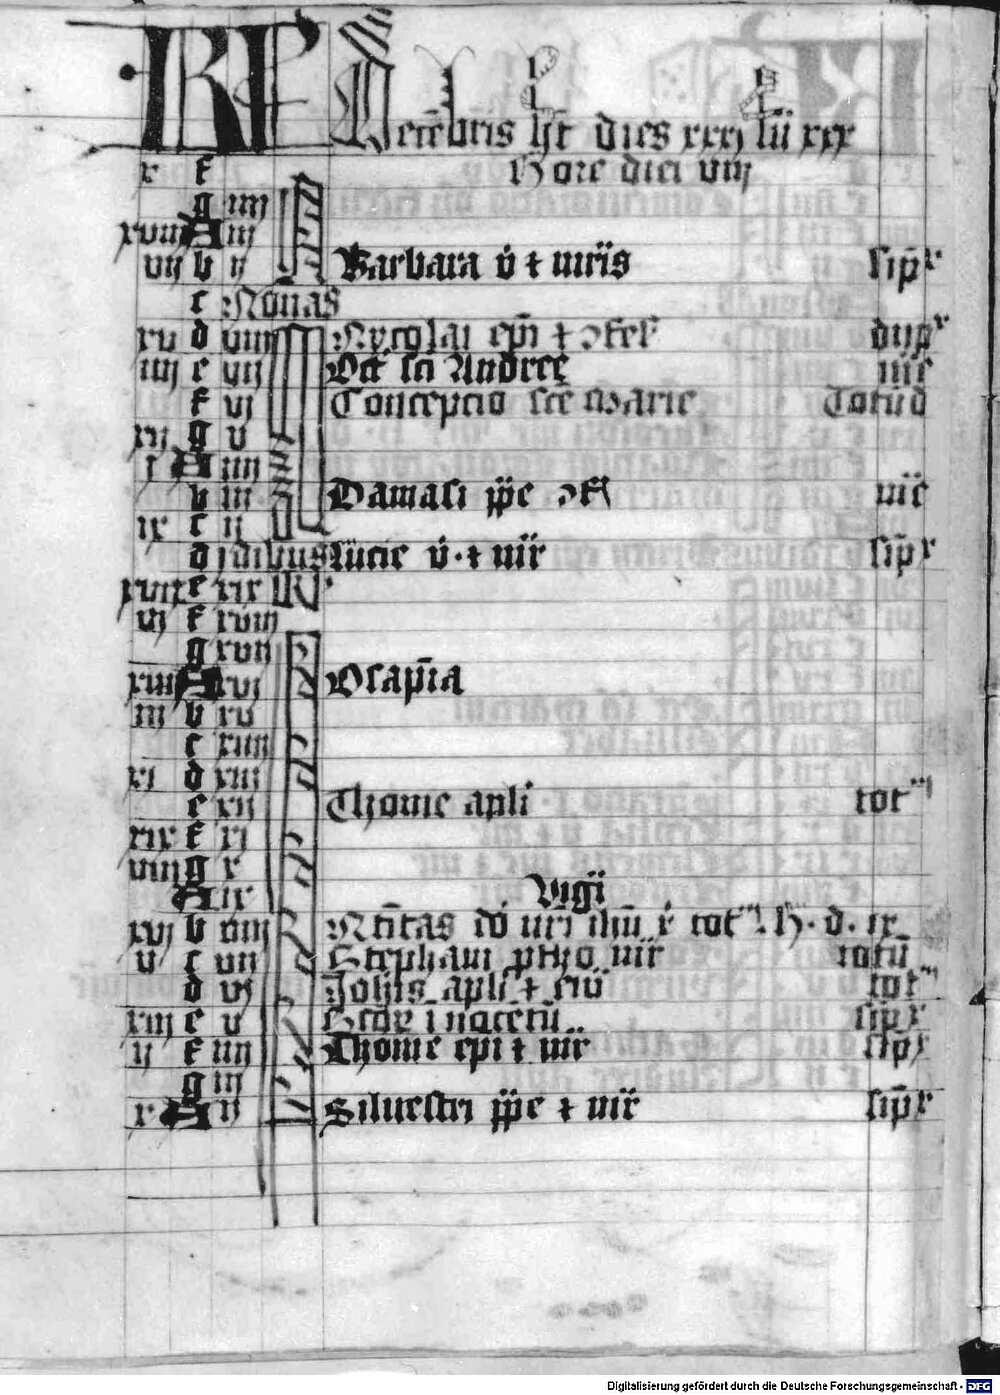 KL Decẽbris hꝫt dies xxxj lũ xxx
x f Hore diei viij
g iiij
xviij A iij
vij b ij Barbara v̇ ⁊ mr̃is sip̃x
c Nonas
xv d viij Nycolai ep̃i ⁊ ↄfess dup̃x
iiij e vij Oct̃ sc̃i Andree mẽ
f vj Concepcio sc̃e Marie Totũ d
xij g v
j A iiij
b iij Damasi pp̃e ↄf mẽ
ix c ij
d jdibus Lucie v̇ ⁊ mr̃ sip̃x
xvij e xix KL
vj f xviij
g xvij
xiiij A xvj O sap̃ia
iij b xv
c xiiij
xj d xiij
e xij Thome apl̃i tot
xix f xj
viij g x
A ix Vigĩ
xvj b viij Nat̃itas dñi nr̃i ihũ x̃ tot h. d. ix
v c vij Stephani ptho mr̃ totũ
d vj Joh̃is apl̃i ⁊ eũ tot
xiij e v Sc̃oꝝ inocetũ sip̃x
ij f iiij Thome epi ⁊ mr̃ sip̃x
g iij
x A ij Siluestri pp̃e ⁊ mr̃ sip̃x
Digitalisierung gefördert durch die Deutsche Forschungsgemeinschaft - DFG